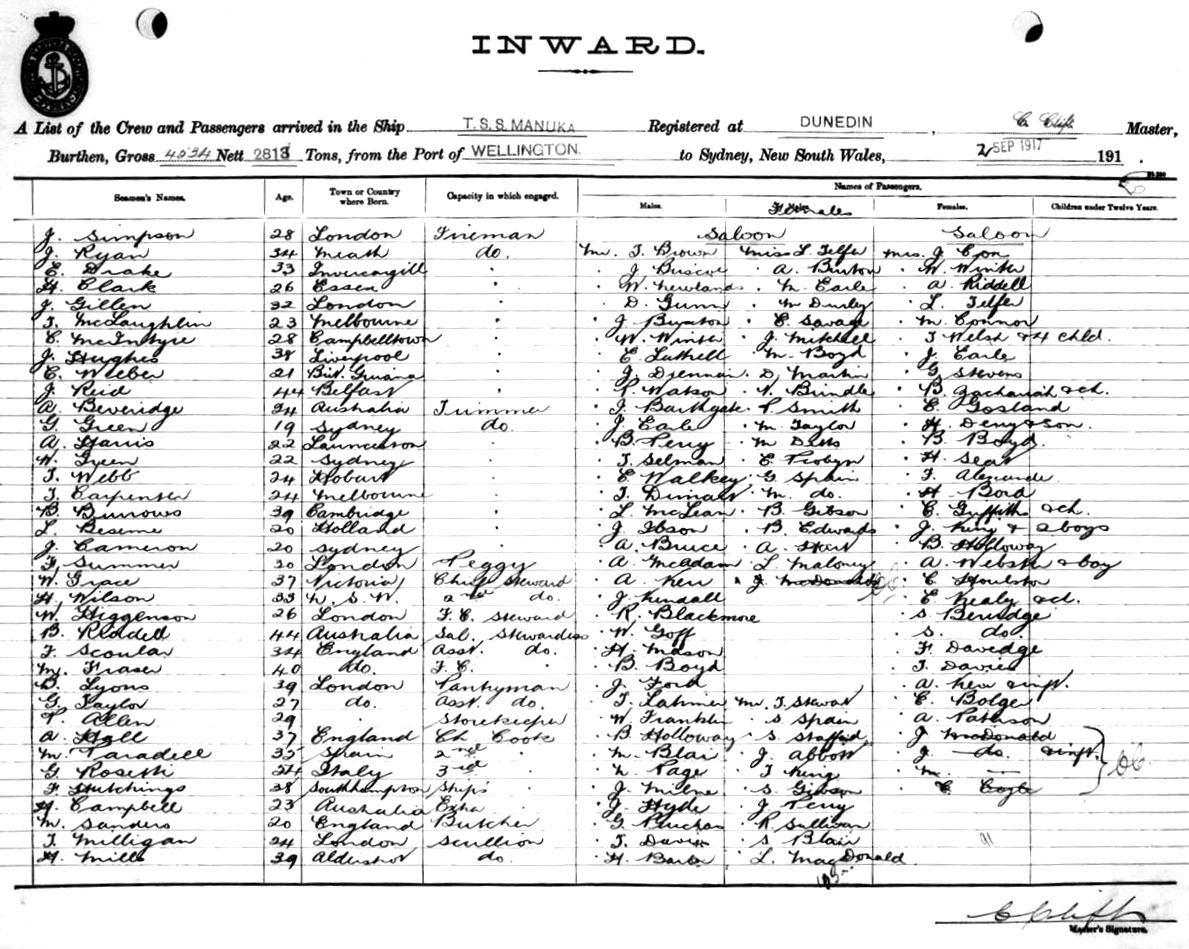 INWARD.
A List of the Crew and Passengers arrived in the Ship T.S.S. MANUKA Registered at DUNEDIN, C. Clift Master,
Burthen, Gross 4534 Nett 2818 Tons, from the Port of WELLINGTON. to Sydney, New South Wales, 2 SEP 1917 191 .
Names of Passengers.
Seamen's Names. Age. Town or Country where Born. Capacity in which engaged. Males. Females Females. Children under Twelve Years.
J. Simpson 28 London Fireman Saloon Saloon
J. Ryan 34 Meath do. Mr. T. Brown Miss L. Telfer Mrs. J. Con
E. Drake 33 Invercargill " J. Buscoe " A. Burton " W. Winter
H. Clark 26 Essex " W. Newlands " M. Earle " A. Riddell
J. Gillen 32 London " D. Gunn " M Dunley " L. Telfer
T. McLaughlin 23 Melbourne " J. Buxton " E. Savage " M. Connor
C. McIntyre 28 Campbelltown " W. Winter " J. Mitchell " T Welsh & 4 chld.
J. Hughes 38 Liverpool " E. Luttrell " M. Boyd " J. Earle
C. Weber 21 Brit. Guiana " J. Drennan " D. Martin " G. Stevens
J. Reid 44 Belfast " P. Watson " V. Brindle " B. Zachariah & ch.
A. Beveridge 24 Australia Trimmer " J. Barthgate " P. Smith " E. Gosland
G. Green 19 Sydney do. " J. Earle " M. Taylor " H. Denysson.
A. Harris 22 Launceston " B. Perry " M Detts " B. Boyd
W. Green 22 Sydney " T. Selman " E. Probyn " H. Sear
T. Webb 24 Hobart " E Walkey " G. Spain " F. Alexander
T. Carpenter 24 Melbourne " T. Dimant " M. do. " H. Bord
B. Burrows 39 Cambridge " L. McLean " B. Gibson " E. Griffiths & ch.
L. Beseme 20 Holland " J. Ibson " B. Edwards " J. King & 2 boys
J. Cameron 20 Sydney " A. Bruce " A. Hart " B. Holloway
F. Summer 20 London Peggy " A. McAdam " L. Maloney " A. Webster & boy
W. Grace 37 Victoria Chief Steward " A. Kerr " J. McDonald " C. Houlston
H. Wilson 33 N. S. W. 2nd do. " J. Kendall " E. Healy & ch.
W. Higgenson 26 London F. C. Steward " R. Blackmore " S Berridge
B. Riddell 44 Australia Sal. Stewardess " W. Goff " S. do.
F. Scoular 34 England Asst. do. " H. Mason " F. Davedge
M. Fraser 40 do. F. C. " B. Boyd " T. Davies
D. Lyons 39 London Pantryman " J. Ford " A. Kerr & inft.
G. Taylor 27 do. Asst. do. " T. Latimer Mr. T. Stewart " E. Bolger
P Allen 29 " Storekeeper " W. Franklin " S. Spain " A. Patterson
A. Hall 37 England Ch. Cook " B Holloway " S. Stafford " J McDonald
M. Taradell 35 Spain 2nd " M. Blair " J. Abbott " J. do. & inft.
G. Roseth 24 Italy 3rd " N. Page " T. King " M.
F. Hutchings 38 Southampton Ships " J. Milne " S. Gibson " C. Coyle
H. Campbell 23 Australia Extra " J. Hyde " J. Perry
M. Sanders 20 England Butcher " G. " R. Sullivan
T. Milligan 24 London Scullion " T. Davis " S Blair 91
H. Mills 39 Aldershot do. " H. Barber " L. MacDonald
C Clift
Master's Signature.